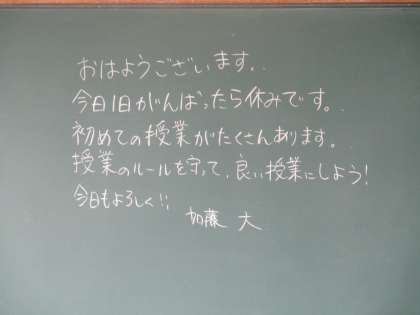 おはようございます。.
今日1日がんばったら休みです。.
初めての授業がたくさんあります。
授業のルールを守って、良い授業にしよう！
今日もよろしく!!
加藤 大